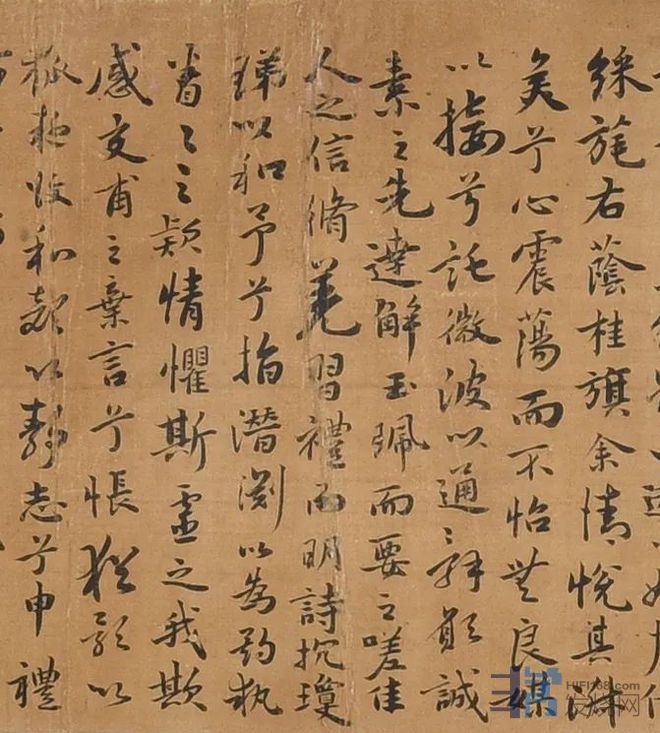 綵旄右蔭桂旗余情悅其淑
美兮心震蕩而不怡無良媒
以接兮託微波以通辭願誠
素之先達解玉珮而要之嗟佳
人之信脩羌習禮而明詩抗瓊
珶以和予兮指潛淵以為期執
眷〻之款情懼斯靈之我欺
感交甫之棄言兮悵猶豫以
狐疑收和顏以靜志兮申禮
HIFI168.com
发烧网